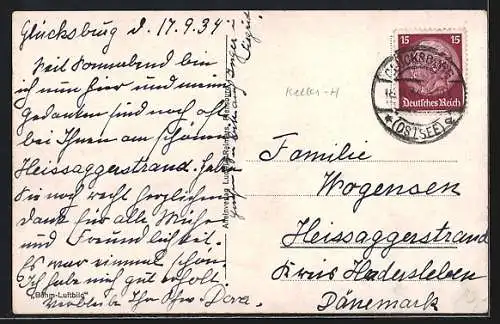 Glücksburg d. 17.9.34
Seit Sonnabend bin
ich nun hier und meine
Gedanken sind noch oft
bei Ihnen am schönen
Heissaggerstrand. Haben
Sie noch recht herzlichen
Dank für alle Mühe
und Freundlichkeit.
Es war einmal schön
Ich habe mich gut erholt
verbleibe Ihr Dora.
"Böhm-Luftbild"
Keller-H
15 15
Deutsches Reich
GLÜCKSBURG
* (OSTSEE) a
Familie
Wogensen
Heissaggerstrand
Kreis Hadersleben
Dänemark